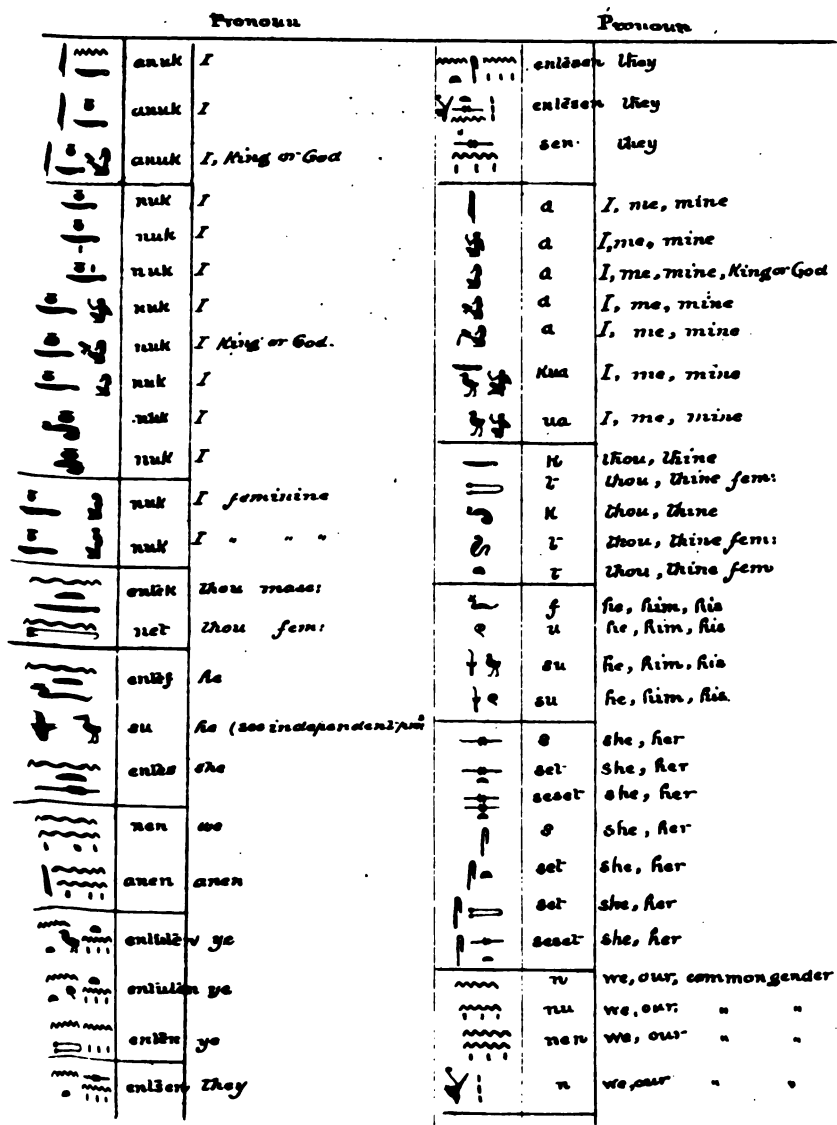 Pronoun
anuk I
anuk I
anuk I, King or God
nuk I
nuk I
nuk I
nuk I
nuk I King or God.
nuk I
nuk I
nuk I
nuk I feminine
nuk I " " "
entek thou masc:
net thou fem:
entef he
su he (see independent
entes she
nen we
anen anen
ye
ye
enten ye
entsen they
Pronoun
entesen they
entesen they
sen. they
a I, me, mine
a I, me, mine
a I, me, mine, King or God
a I, me, mine
a I, me, mine
Kua I, me, mine
ua I, me, mine
K thou, thine
t thou, thine fem:
K thou, thine
t thou, thine fem:
t thou, thine fem
f he, him, his
u he, him, his
su he, him, his
su he, him, his.
s she, her
set she, her
seset she, her
s she, her
set she, her
set she, her
seset she, her
n we, our, common gender
nu we, our, " "
nen we, our " "
n we, our " "